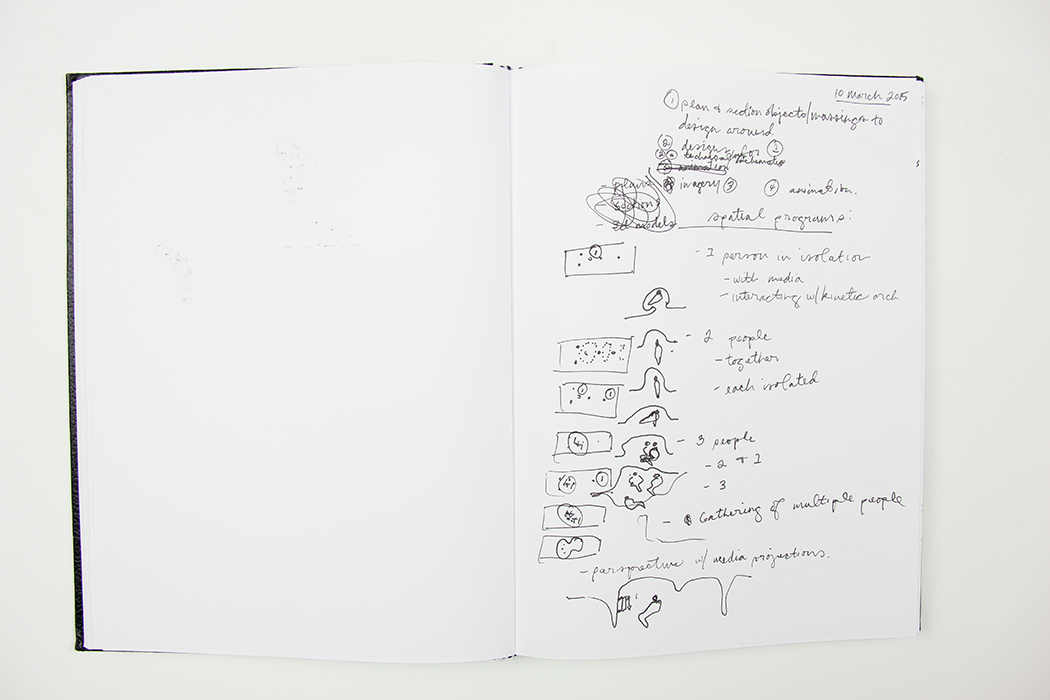 10 March 2015
① plan & section objects/massings to
design around
② designs for ①
animation
imagery ③ ④ animation.
- plans
- sections
- 3d models
spatial programs:
- 1 person in isolation
- with media
- interacting w/kinetic arch
- 2 people
- together
- each isolated
- 3 people
- 2 + 1
- 3
- Gathering of multiple people
- perspective w/ media projections.